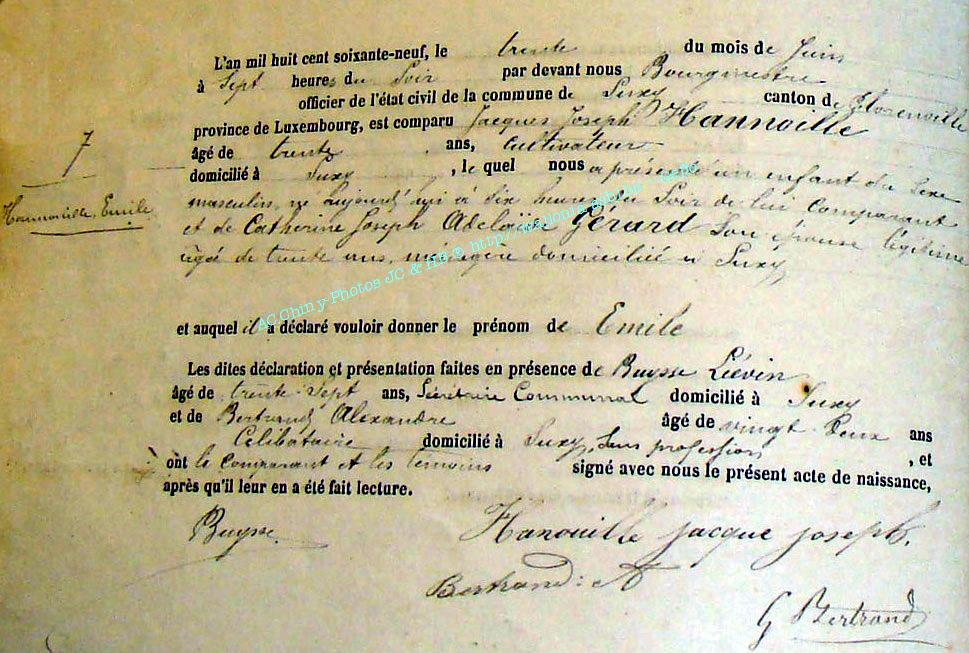 L'an mil huit cent soixante-neuf, le trente du mois de Juin
à Sept heures du Soir par devant nous Bourgmestre
officier de l'état civil de la commune de Suxy canton de Florenville
province de Luxembourg, est comparu Jacques Joseph Hannoille
âgé de trente ans, Cultivateur
domicilié à Suxy, le quel nous a présenté un enfant du Sexe
masculin, né aujourd'hui à dix heures du Soir de lui Comparant
et de Catherine Joseph Adelaïde Gérard Son épouse légitime
agée de trente ans, ménagère domiciliée à Suxy
7
Hannouille, Emile
AC Chiny-Photos JC & HB © http://
et auquel il a déclaré vouloir donner le prénom de Emile
Les dites déclaration et présentation faites en présence de Buysse Liévin
âgé de trente-Sept ans, Sécrétaire Communal domicilié à Suxy
et de Bertrand Alexandre âgé de vingt deux ans
Célibataire domicilié à Suxy, Sans profession, et
ont le comparant et les temoins signé avec nous le présent acte de naissance,
après qu'il leur en a été fait lecture.
Buysse
Hanouille jacque joseph.
Bertrand: A
G Bertrand